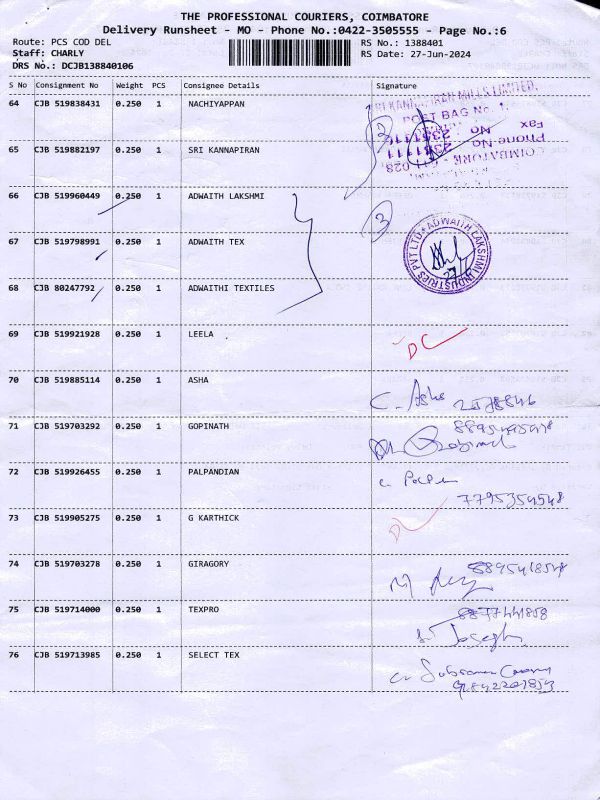 THE PROFESSIONAL COURIERS, COIMBATORE
Delivery Runsheet - MO - Phone No.:0422-3505555 - Page No.:6
Route: PCS COD DEL RS No.: 1388401
Staff: CHARLY RS Date: 27-Jun-2024
DRS No.: DCJB138840106
S No Consignment No Weight PCS Consignee Details Signature
64 CJB 519838431 0.250 1 NACHIYAPPAN
SRI KANNAPIRAN MILLS LIMITED.
POST BAG No. 1
Phone No
Fax No
COIMBATORE - 641 028.
3
65 CJB 519882197 0.250 1 SRI KANNAPIRAN
66 CJB 519960449 0.250 1 ADWAITH LAKSHMI
3
67 CJB 519798991 0.250 1 ADWAITH TEX
ADWAITH LAKSHMI INDUSTRIES PVT LTD
27/6
68 CJB 80247792 0.250 1 ADWAITHI TEXTILES
69 CJB 519921928 0.250 1 LEELA DC
70 CJB 519885114 0.250 1 ASHA C. Asha
71 CJB 519703292 0.250 1 GOPINATH
72 CJB 519926455 0.250 1 PALPANDIAN
7795354548
73 CJB 519905275 0.250 1 G KARTHICK DC
74 CJB 519703278 0.250 1 GIRAGORY
75 CJB 519714000 0.250 1 TEXPRO
Joseph
76 CJB 519713985 0.250 1 SELECT TEX